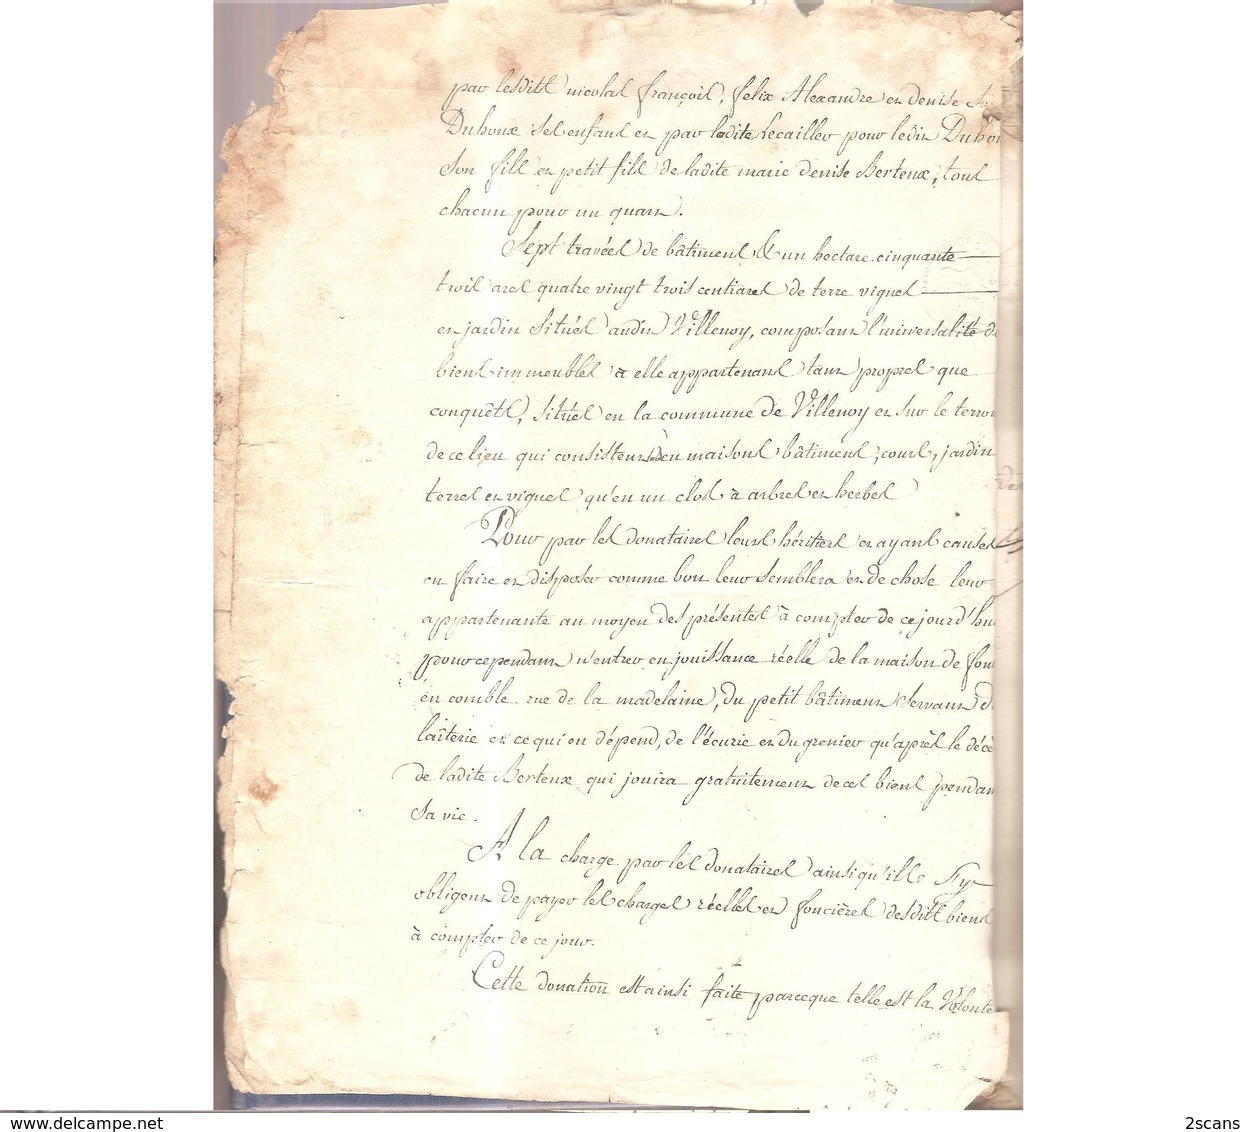 par lesdits nicolas françois, felix Alexandre et denise
Duhoux ses enfans et par ladite Lecailler pour ledit Duhou
son fils et petit fils de ladite marie denise Berteux, tous
chacun pour un quart.
Sept travées de bâtiment & un hectare cinquante
trois ares quatre vingt trois centiares de terre vignes
et jardin situés audit Villenoy, composant l'universalité de
biens immeubles à elle appartenans tant propres que
conquêts, situés en la commune de Villenoy et sur le terroi
de ce lieu qui consistent en maisons bâtimens, cours, jardin
terres et vignes qu'en un clos à arbres et herbes
Pour par les donataires leurs héritiers et ayans causes
en faire et disposer comme bon leur semblera et de chose leur
appartenante au moyen des présentes à compter de ce jourd'hui
pour cependant n'entrer en jouissance réelle de la maison de fon
en comble rue de la madelaine, du petit bâtiment servant de
laiterie et ce qui en dépend, de l'écurie et du grenier qu'après le décè
de ladite Berteux qui jouira gratuitement de ces biens pendan
sa vie.
A la charge par les donataires ainsi qu'ils s'y
obligent de payer les charges réelles et foncières desdits biens
à compter de ce jour.
Cette donation est ainsi faite parceque telle est la Volonté
2scans
www.delcampe.net